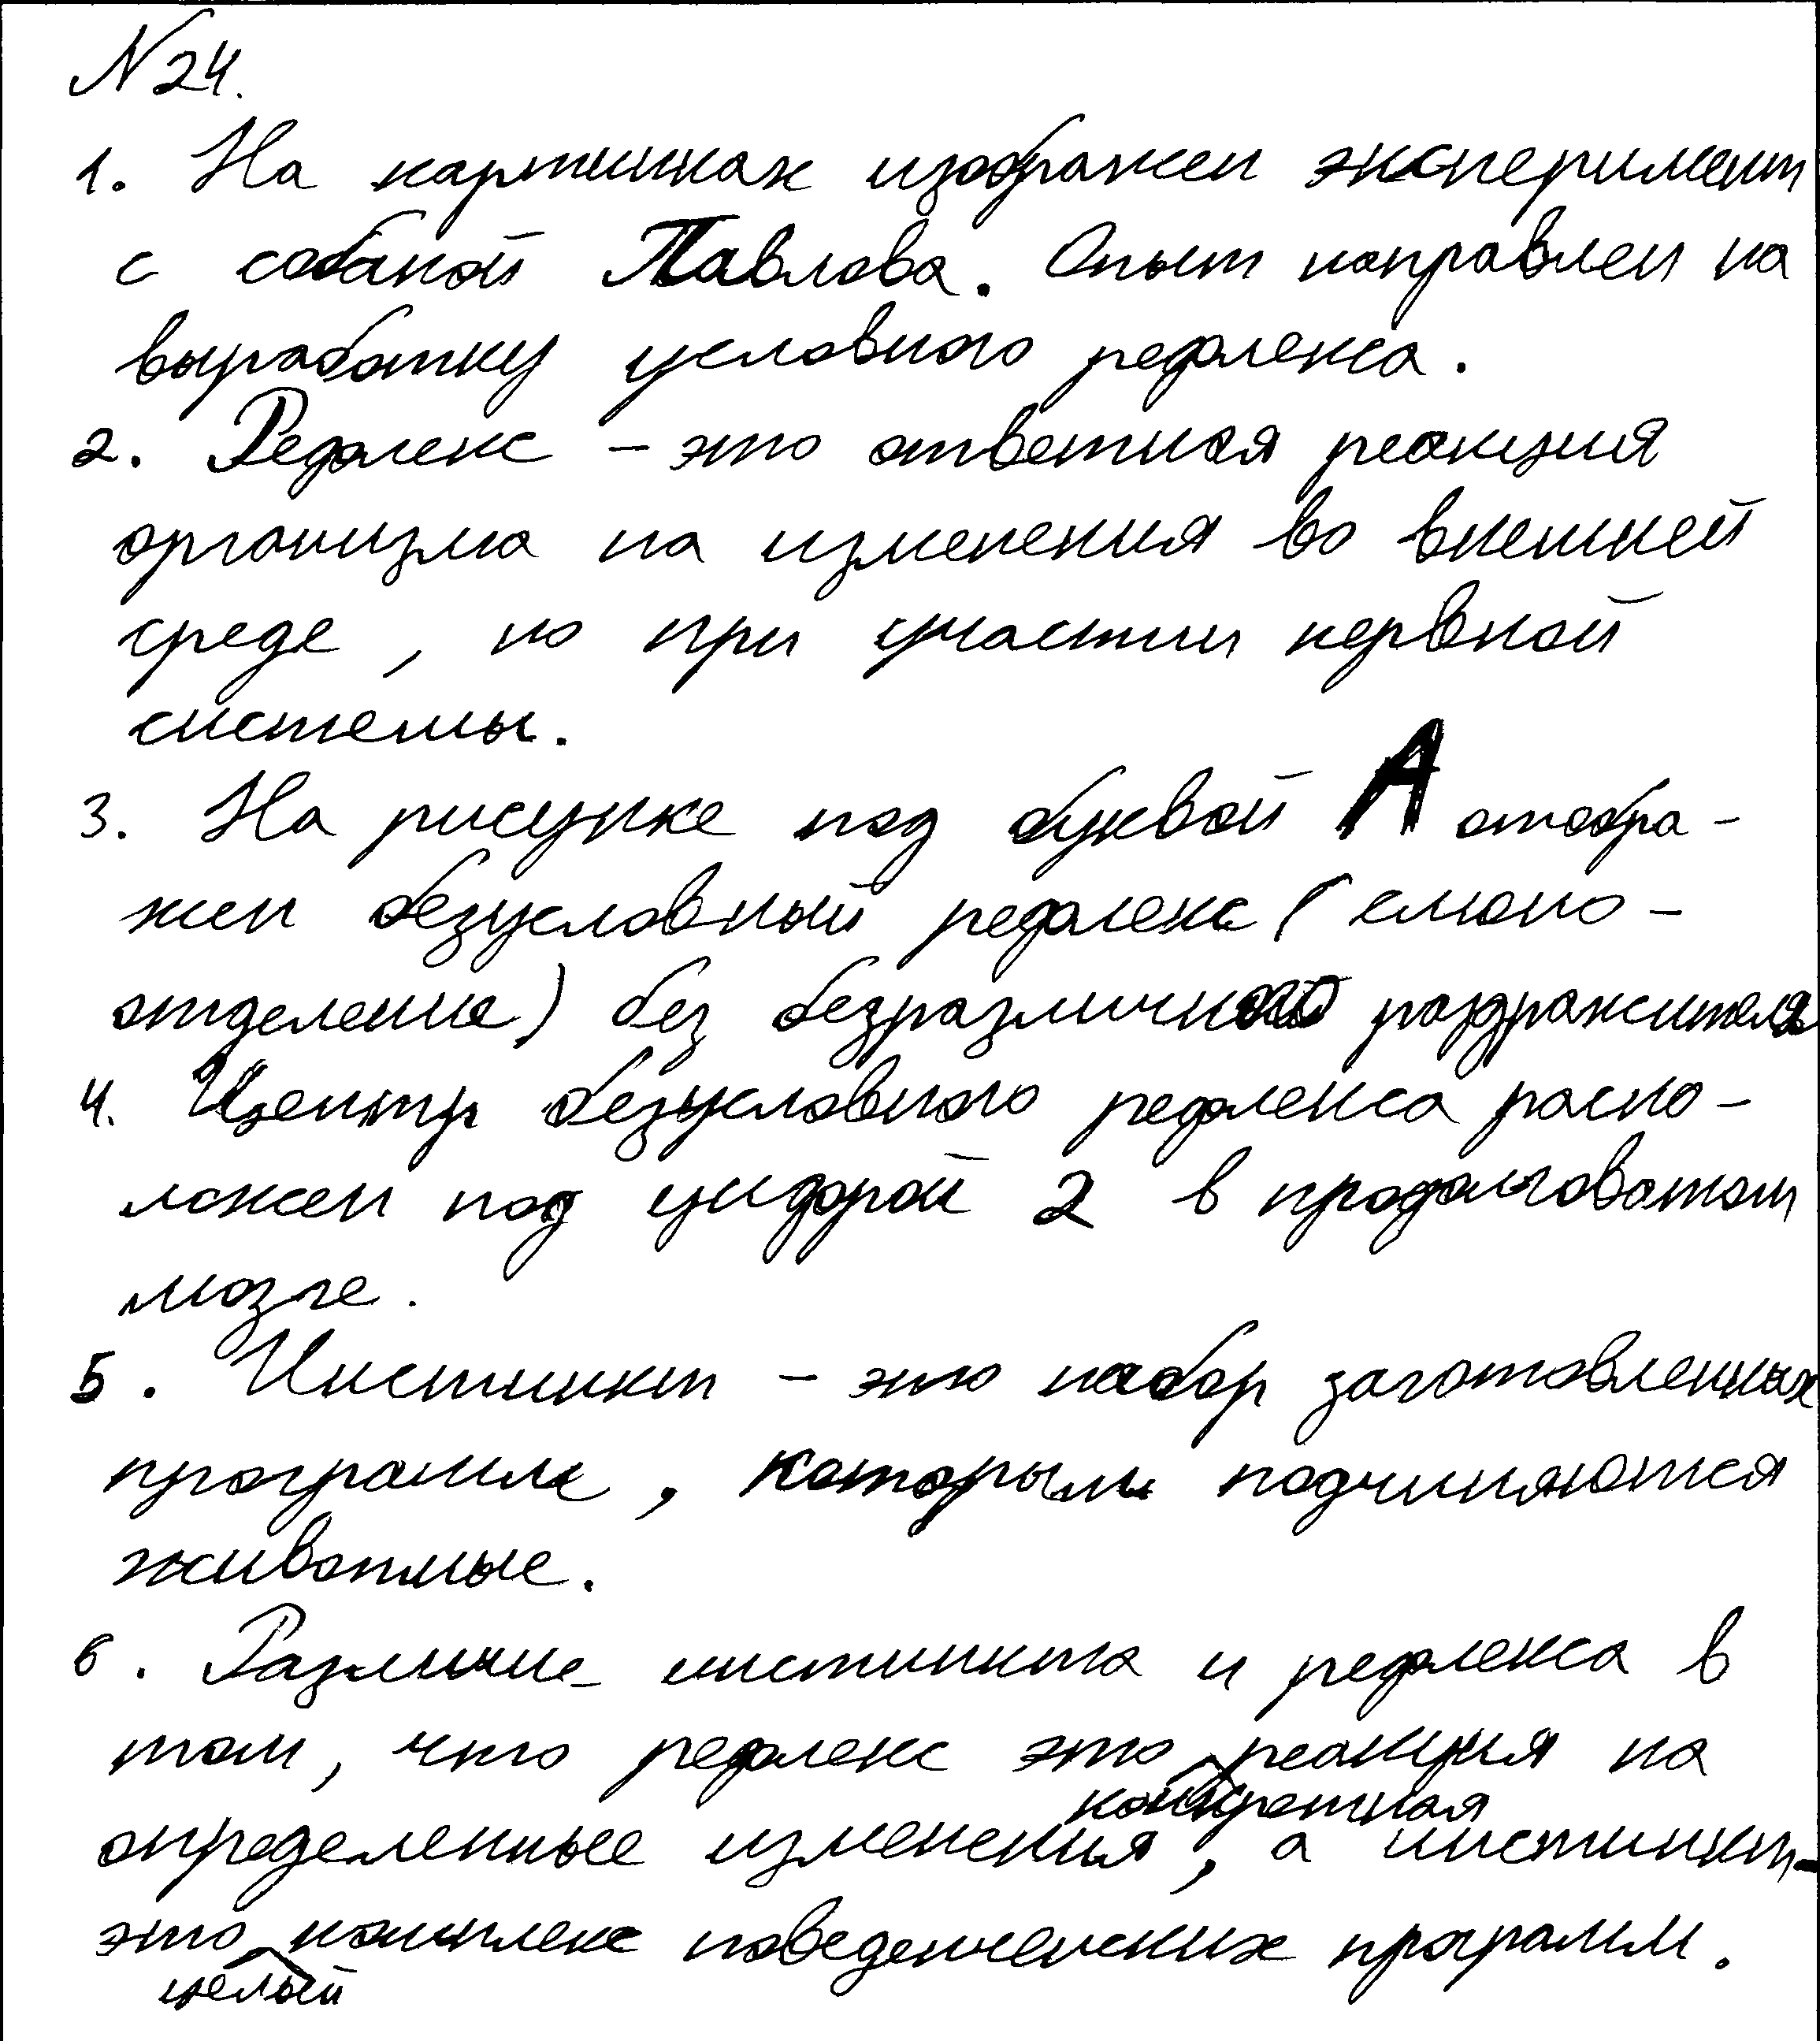 N 24.
1. На картинках изображен эксперимент
с собакой Павлова. Опыт направлен на
выработку условного рефлекса.
2. Рефлекс – это ответная реакция
организма на изменения во внешней
среде, но при участии нервной
системы.
3. На рисунке под буквой А отобра-
жен безусловный рефлекс (слюно-
отделение) без безразличного раздражителя
4. Центр безусловного рефлекса распо-
ложен под цифрой 2 в продолговатом
мозге.
5. Инстинкт – это набор заготовленных
программ, которым подчиняются
животные.
6. Различие инстинкта и рефлекса в
том, что рефлекс это реакция на
конкретная
определенные изменения, а инстинкт-
это комплекс поведенческих программ.
целый